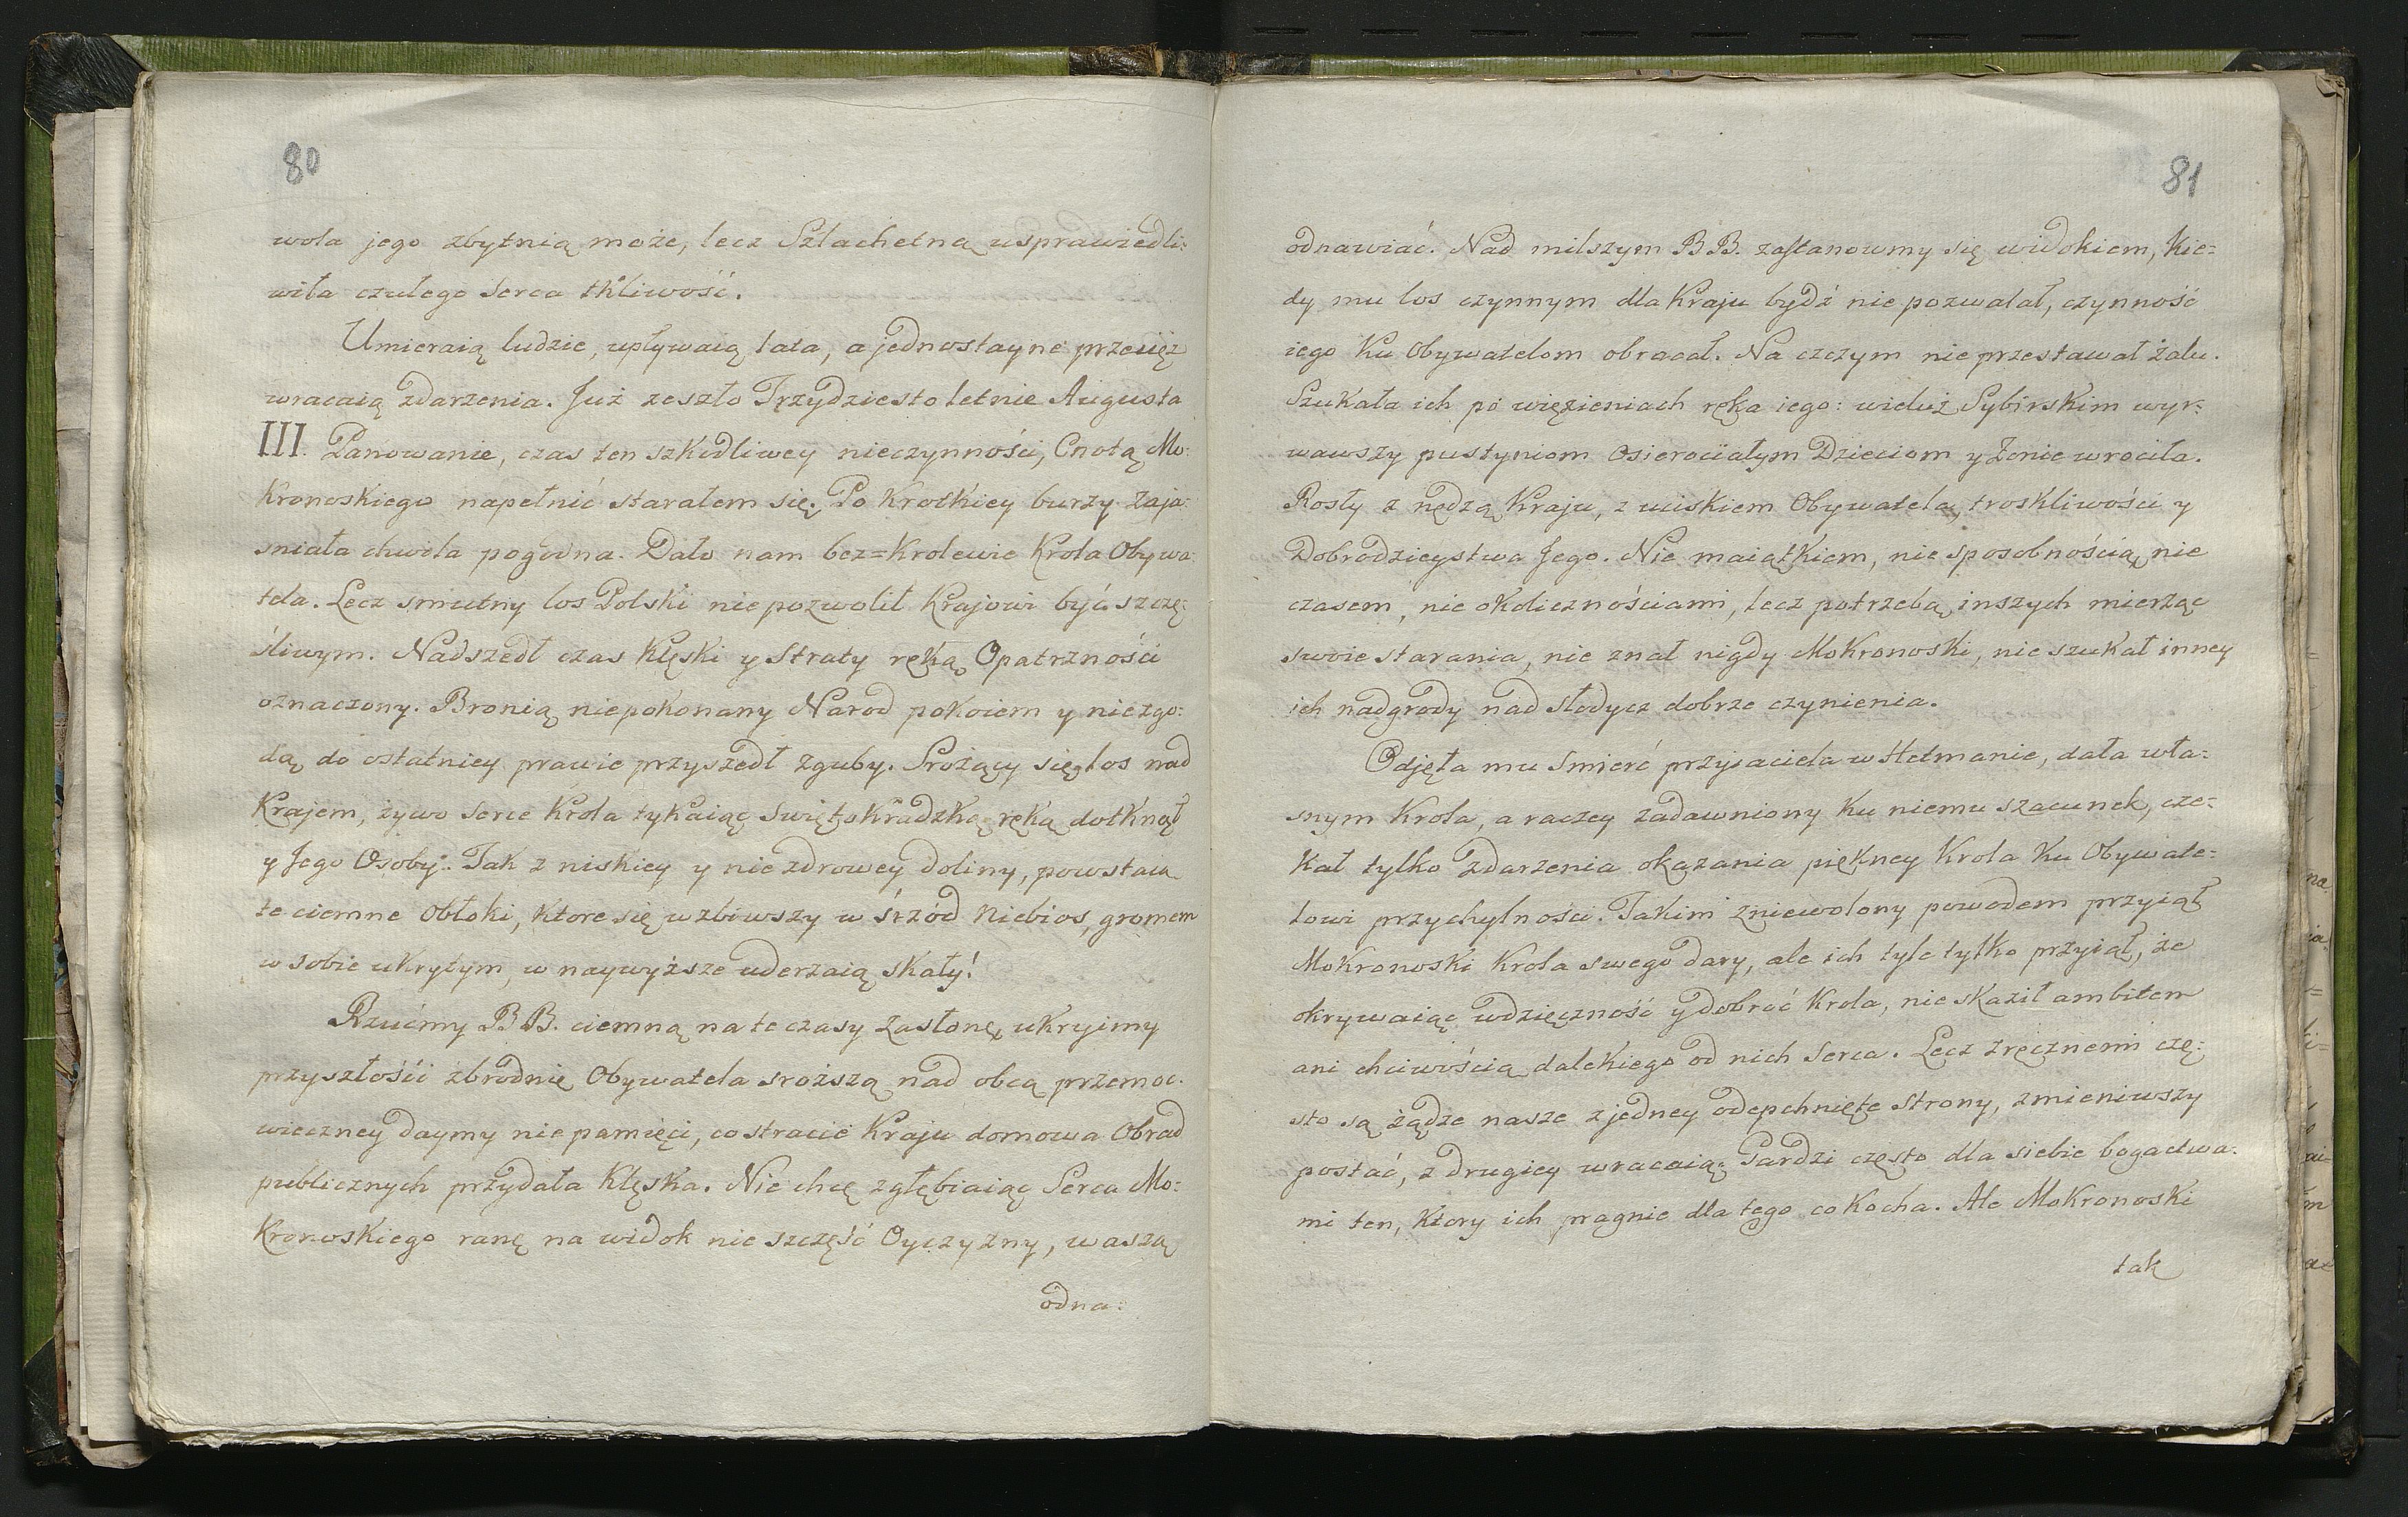 80
wola jego zbytnią może, lecz Szlachetną usprawiedli:
wiła czułego Serca tkliwość.
Umieraią ludzie, upływaią lata, a jednostayne przecięż
wracaią zdarzenia. Już zeszło Trzydziesto letnie Augusta
III. Panowanie, czas ten szkodliwey nieczynności, Cnotą Mo:
Kronoskiego napełnić starałem się. Po Krotkiey burzy zaja:
sniała chwila pogodna. Dało nam bez=Krolewie Krola Obywa:
tela. Lecz smutny los Polski nie pozwolił Krajowi być szczę:
śliwym. Nadszedł czas Klęski y Straty ręką Opatrzności
oznaczony. Bronią niepokonany Narod pokoiem y niezgo:
dą do ostatniey prawie przyszedł zguby. Srożący się los nad
Krajem, żywo Serce Krola tykaiąc Swiętokradzką ręką dotknął
y Jego Osoby. Tak z niskiey y nie zdrowey doliny, powstaią
te ciemne Obłoki, Ktore się wzbiwszy w śrzód Niebios, gromem
w sobie ukrytym, w naywyższe uderzaią skały!
Rzućmy B B. ciemną na te czasy zasłonę, ukryimy
przyszłośći zbrodnię Obywatela sroższą nad obcą przemoc.
wieczney daymy nie pamięci, co stracie Kraju domowa Obrad
publicznych przydała Klęska. Nie chcę zgłębiaiąc Serca Mo:
Kronoskiego ranę na widok nie szczęść Oyczyzny, waszą
odna:
81
odnawiać. Nad milszym B B. zastanowmy się widokiem, Kie:
dy mu los czynnym dla Kraju bydź nie pozwalał, czynność
iego Ku Obywatelom obracał. Na czczym nie przestawał żalu.
Szukała ich po więzieniach ręka iego: wieluż Sybirskim wyr:
wawszy pustyniom Osierociałym Dzieciom y Żonie wrociła.
Rosły z nędzą Kraju, z uciskiem Obywatela, troskliwości y
Dobrodzieystwa Jego. Nie maiątkiem, nie sposobnością, nie
czasem, nie okolicznościami, lecz potrzebą inszych mierząc
swoie starania, nie znał nigdy MoKronoski, nie szukał inney
ich nadgrody nad słodycz dobrze czynienia.
Odjęła mu Smierć przyiaciela w Hetmanie, dała wła:
snym Krola, a raczey zadawniony Ku niemu szacunek, cze:
Kał tylko zdarzenia okazania piękney Krola Ku Obywate:
lowi przychylności. Takim zniewolony powodem przyiął
MoKronoski Krola swego dary, ale ich tyle tylko przyiął, że
okrywaiąc wdzięczność y dobroć Krola, nie skaził ambitem
ani chciwością dalekiego od nich Serca. Lecz zręcznemi czę:
sto są żądze nasze z jedney odepchnięte Strony, zmieniwszy
postać, z drugiey wracaią. Gardzi często dla siebie bogactwa:
mi ten, Ktory ich pragnie dla tego co Kocha. Ale MoKronoski
tak